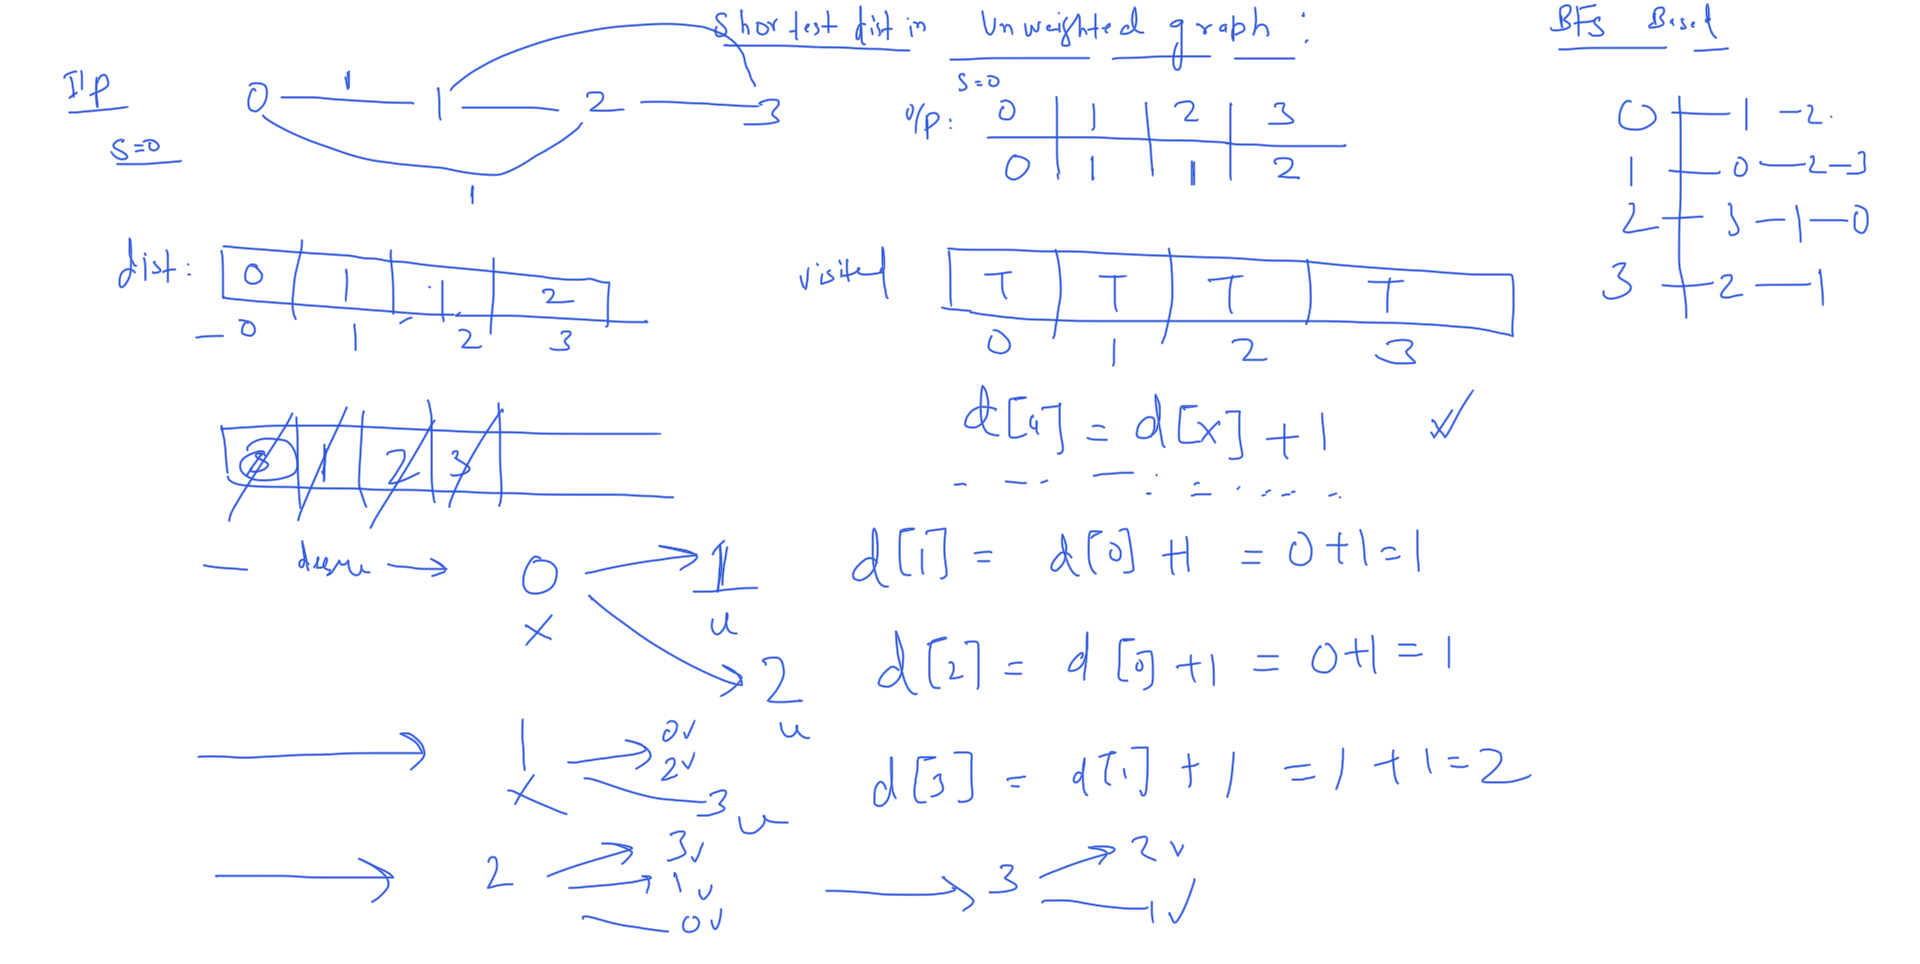 Shortest dist in Unweighted graph :
BFS Based
I/p
S=0
0 1 1 2 3
1
S=0
o/p: 0 1 2 3
0 1 1 2
0 1 -2
1 0 -2-3
2 3 -1-0
3 2 -1
dist: 0 1 1 2
0 1 2 3
visited T T T T
0 1 2 3
d[u] = d[x] + 1
0 1 2 3
0 → 1
x u
2
u
d[1] = d[0] +1 = 0+1=1
d[2] = d[0] +1 = 0+1 = 1
1 → 0✓
2✓
x 3
u
d[3] = d[1] + 1 = 1 +1=2
2 → 3✓
1✓
0✓
3 → 2✓
1✓